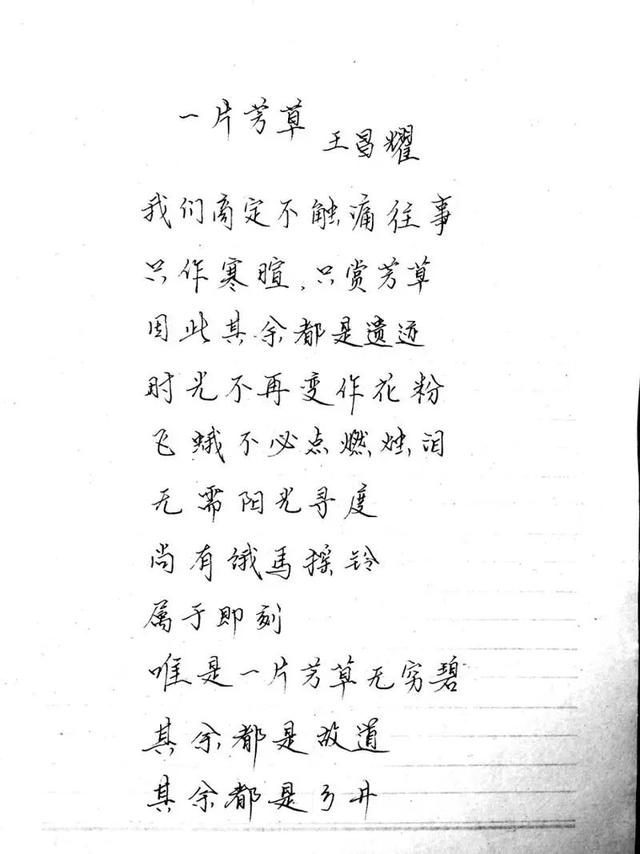 一片芳草
王昌耀
我们商定不触痛往事
只作寒暄,只赏芳草
因此其余都是遗迹
时光不再变作花粉
飞蛾不必点燃烛泪
无需阳光寻度
尚有饿马摇铃
属于即刻
唯是一片芳草无穷碧
其余都是故道
其余都是乡井